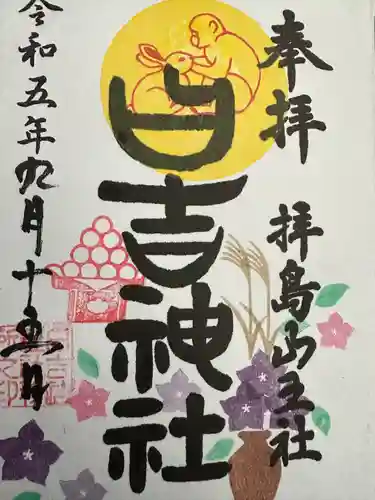 奉拝
拝島山王社
日吉神社
令和五年九月十五日